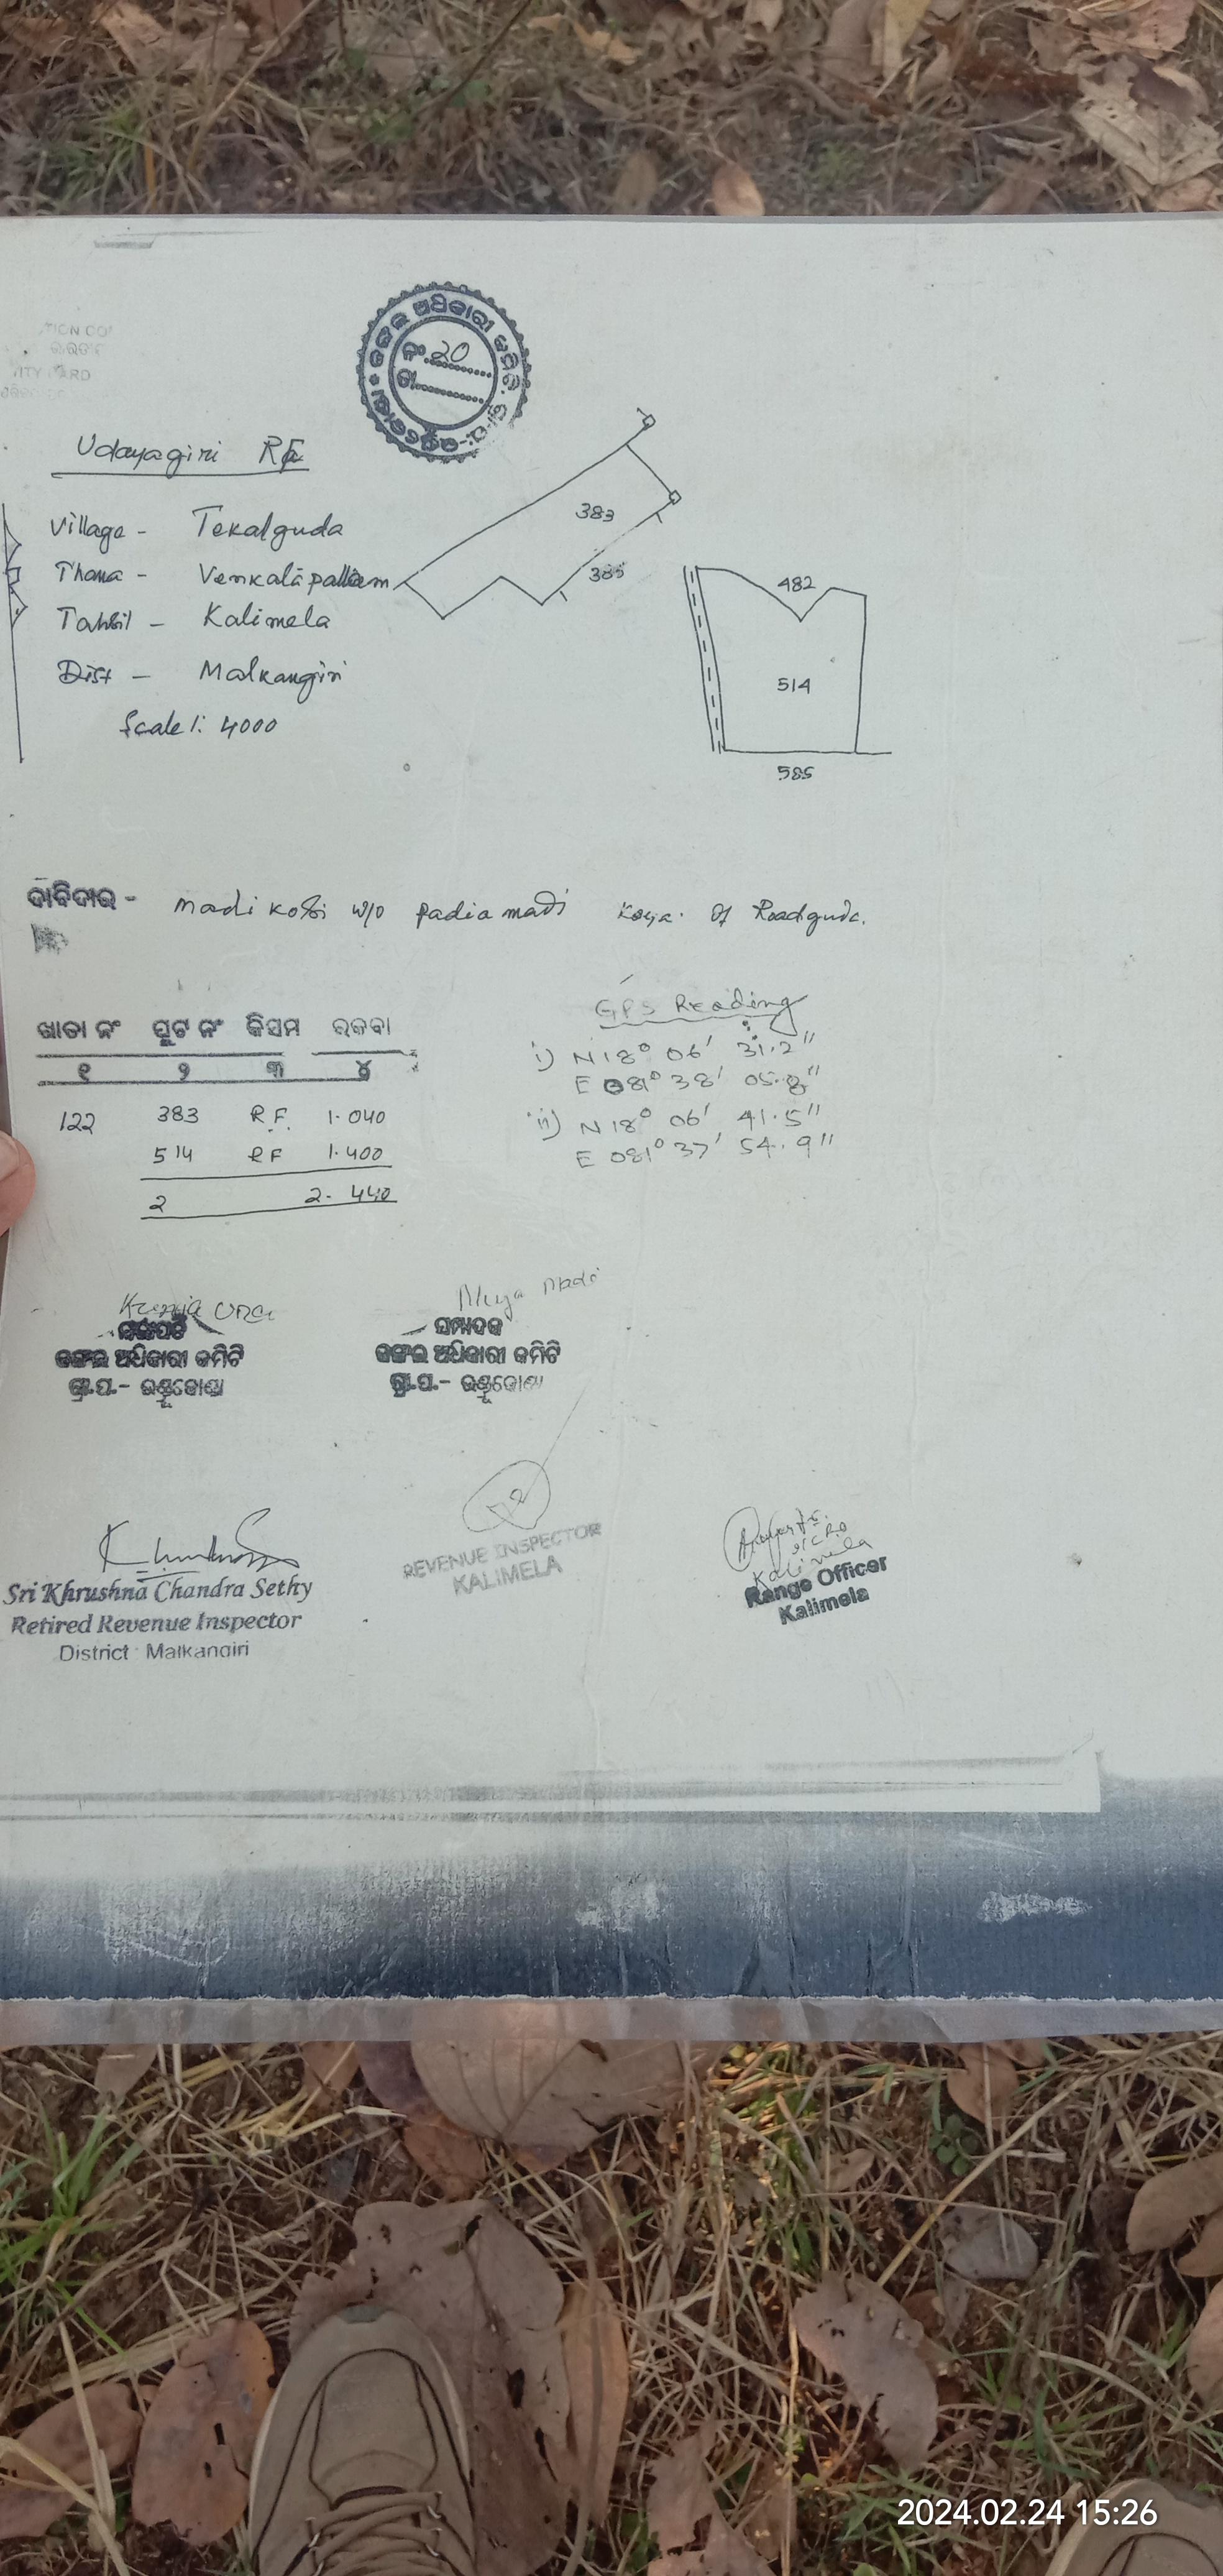 ନଂ. 20
ତା.
Udayagiri RF
Village - Tekalguda
Thana - Venkatapallam
Tahsil - Kalimela
Dist - Malkangiri
Scale 1: 4000
383
385
482
514
585
ଦାବିଦାର - Madi Kosi W/o Padia Madi Koya. Of Roadguda.
ଖାତା ନଂ ପ୍ଲଟ ନଂ କିସମ ରକବା
୧ ୨ ୩ ୪
122 383 R.F. 1.040
514 RF 1.400
2 2.440
GPS Reading
i) N 18° 06' 31.2"
E 081° 38' 05.8"
ii) N 18° 06' 41.5"
E 081° 37' 54.9"
ସଭାପତି
ଜଙ୍ଗଲ ଅଧିକାରୀ କମିଟି
ଗ୍ରା.ପ.-
Muya Madi
ସମ୍ପାଦକ
ଜଙ୍ଗଲ ଅଧିକାରୀ କମିଟି
ଗ୍ରା.ପ.-
Sri Khrushna Chandra Sethy
Retired Revenue Inspector
District : Malkangiri
REVENUE INSPECTOR
KALIMELA
Kalimela
Range Officer
Kalimela
2024.02.24 15:26